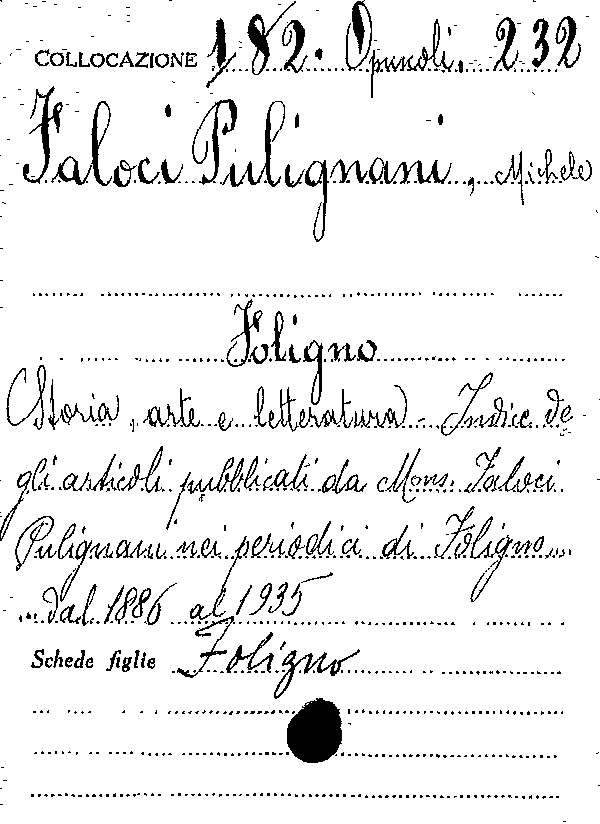 COLLOCAZIONE 182. Opuscoli. 232
Faloci Pulignani, Michele
Foligno
(Storia, arte e letteratura) - Indice de
gli articoli pubblicati da Mons. Faloci
Pulignani nei periodici di Foligno...
...dal 1886 al 1935
Schede figlie Foligno